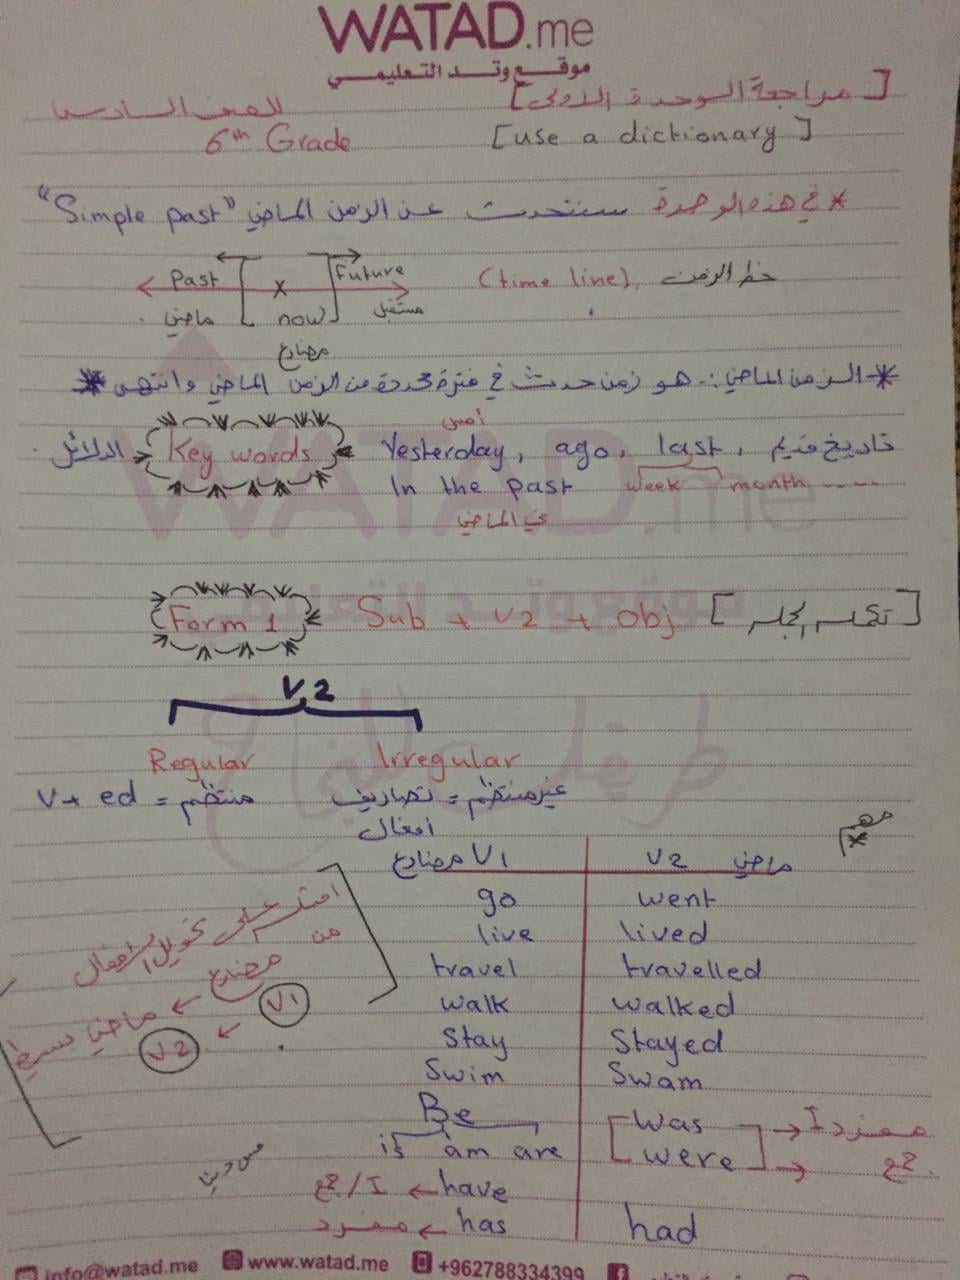 WATAD.me
موقع وتد التعليمي
[مراجعة الوحدة الأولى] للصف السادس
[use a dictionary] 6th Grade
* في هذه الوحدة سنتحدث عن الزمن الماضي "Simple past"
خط الزمن (time line)
Past Future
x
ماضي now مستقبل
مضارع
* الزمن الماضي :- هو زمن حدث في فترة محددة من الزمن الماضي وانتهى *
أمس
الدلائل Key words Yesterday, ago, last, تاريخ قديم
In the past week month ----
في الماضي
Form 1 Sub + V2 + Obj
V2
Regular Irregular
V+ ed = منتظم غير منتظم = تصاريف
أفعال
مضارع V1 V2 ماضي
go went
live lived
travel travelled
walk walked
Stay Stayed
Swim Swam
Be
is am are
Was → I مفرد
were → جمع
have → I / جمع
has → مفرد
had
على تحويل الأفعال
من
مضارع ← ماضي بسيط
V1 → V2
info@watad.me www.watad.me +962788334399